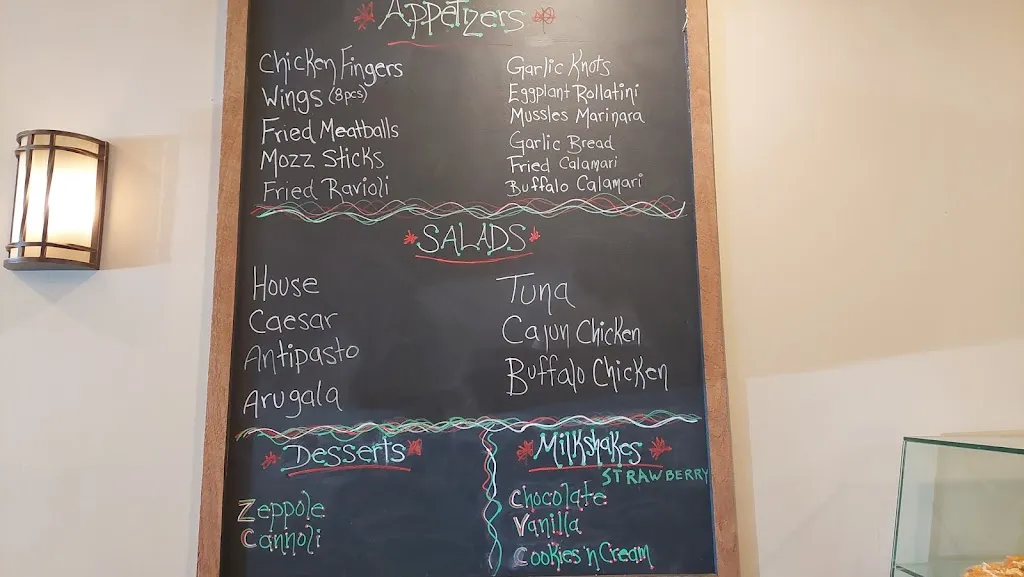 Appetizers
Chicken Fingers
Wings (8pcs)
Fried Meatballs
Mozz Sticks
Fried Ravioli
Garlic Knots
Eggplant Rollatini
Mussles Marinara
Garlic Bread
Fried Calamari
Buffalo Calamari
SALADS
House
Caesar
Antipasto
Arugala
Tuna
Cajun Chicken
Buffalo Chicken
Desserts
Zeppole
Cannoli
Milkshakes
STRAWBERRY
Chocolate
Vanilla
Cookies 'n Cream